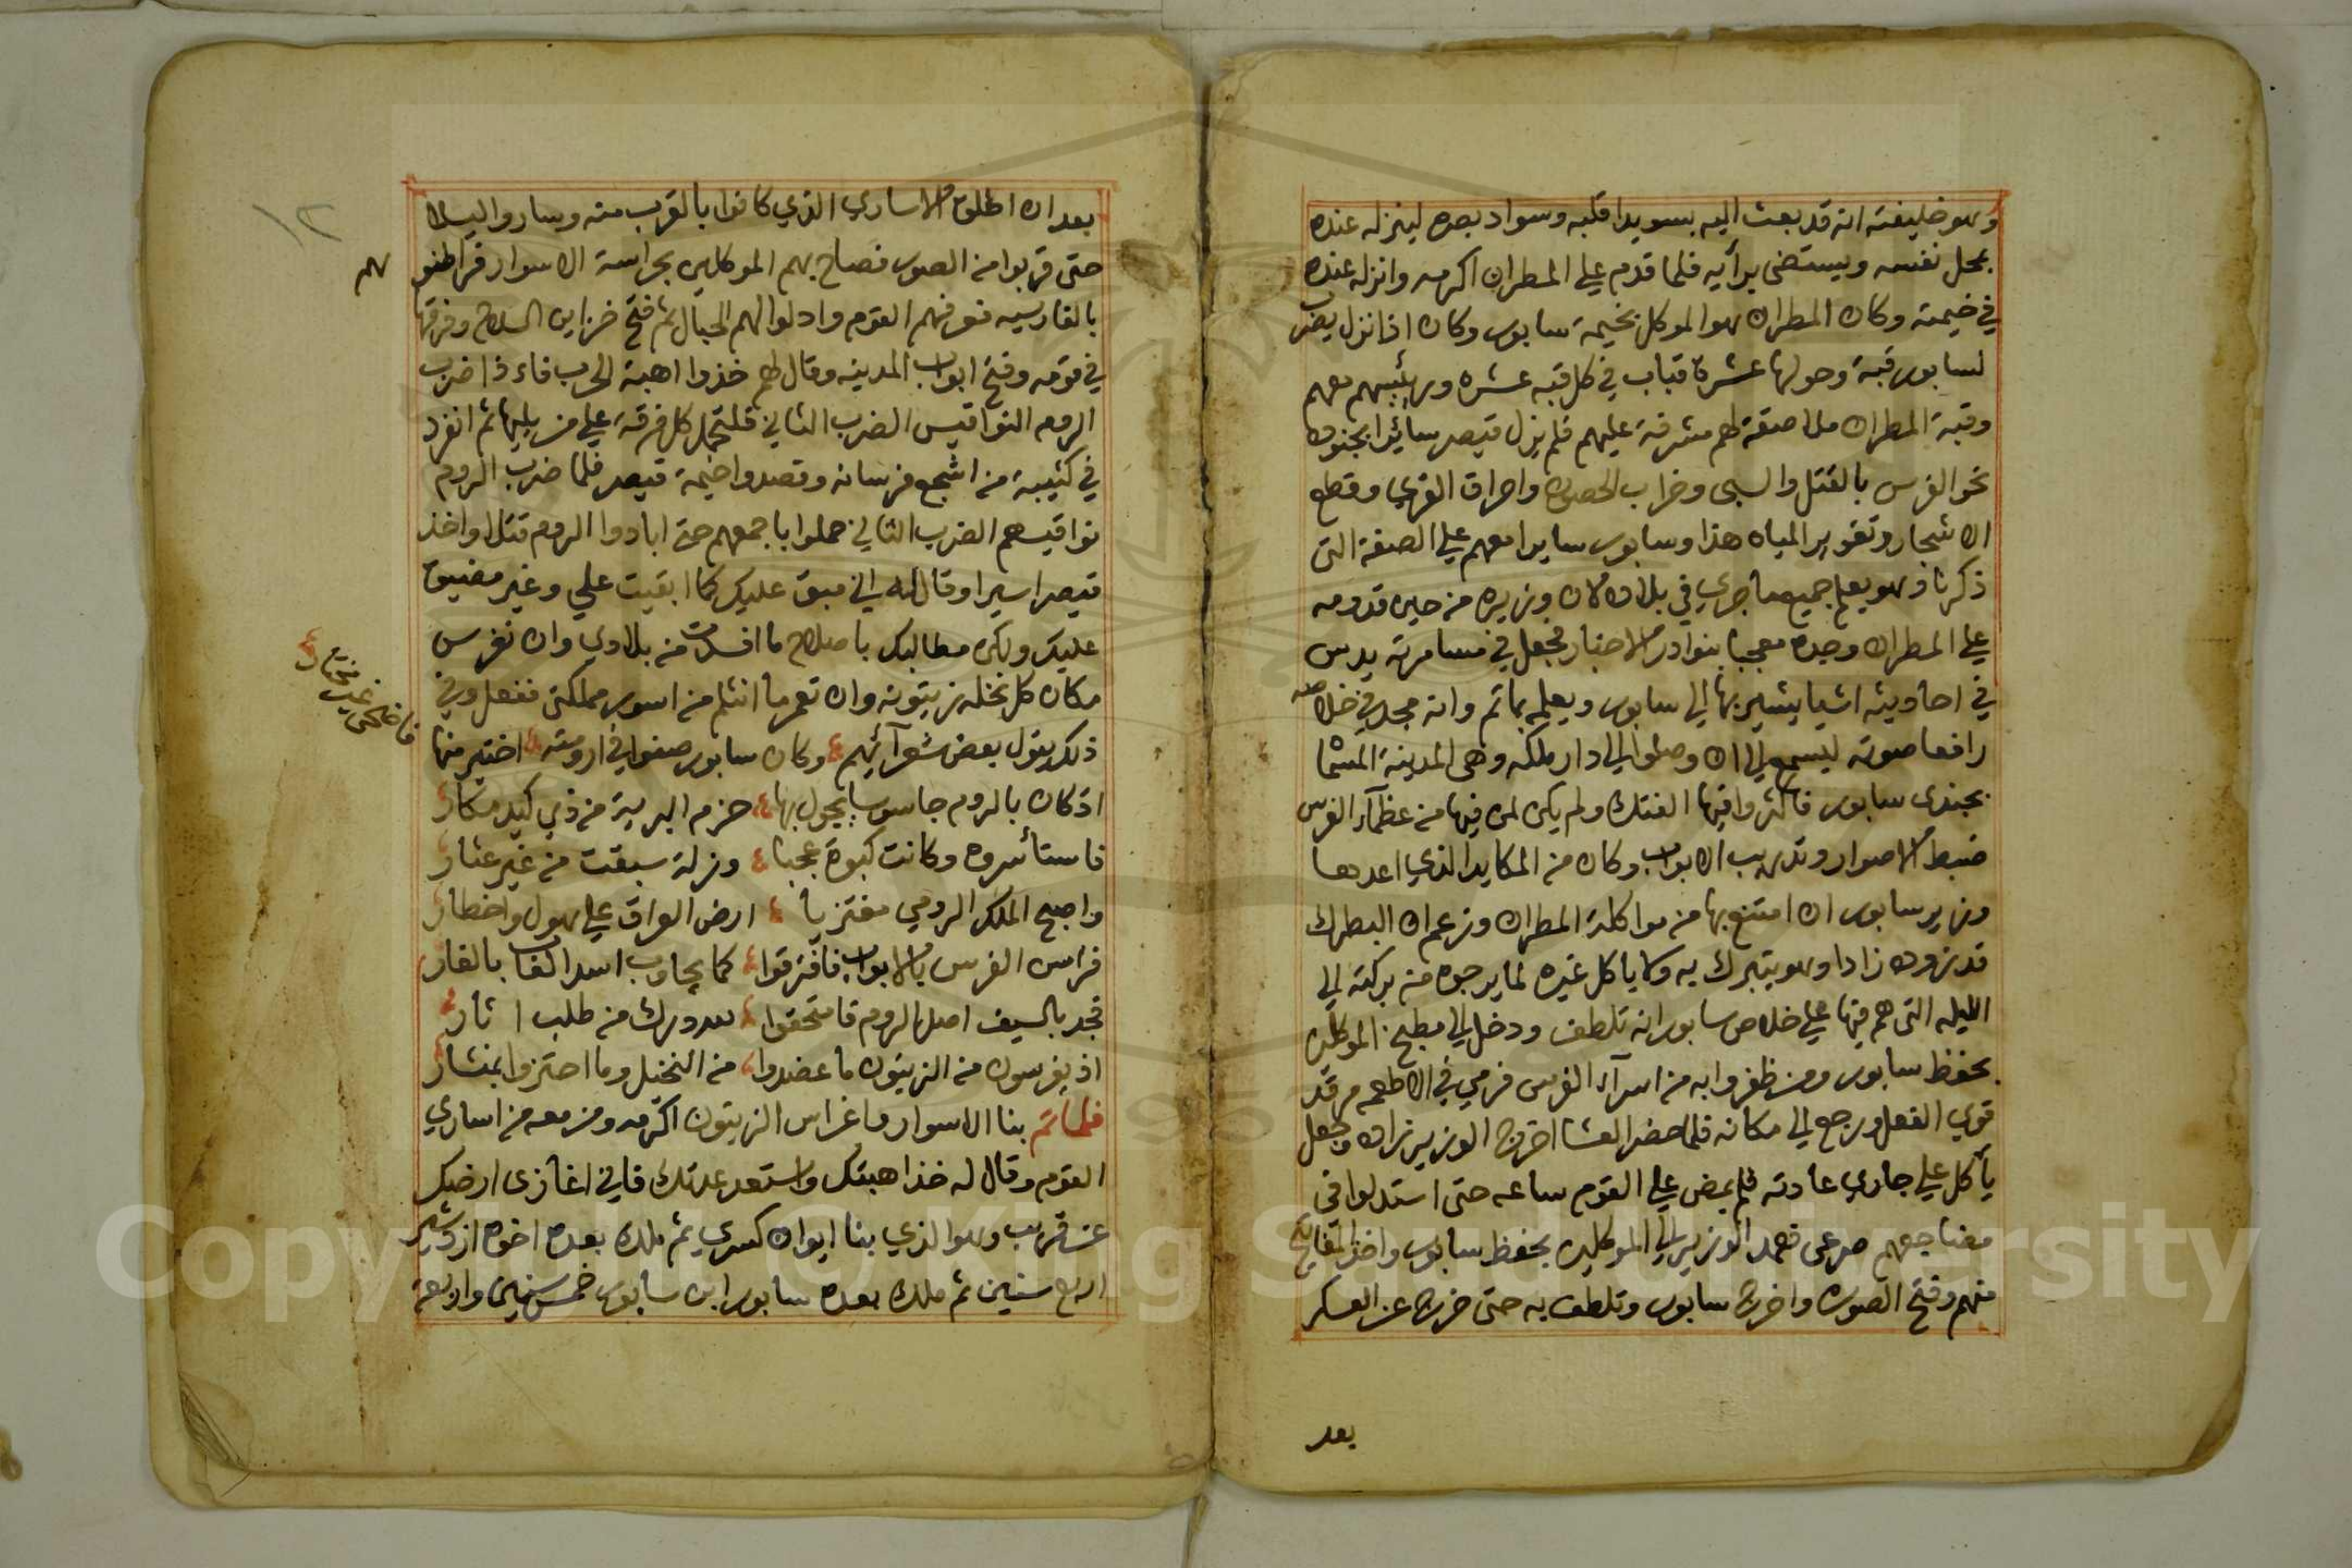 وهو خليفته انه قد بعث اليه بسويدا قلبه وسواد بصره لينزله عنده
بمحل نفسه ويستضئ برأيه فلما قدم علي المطران اكرمه وانزله عنده
في خيمته وكان المطران هو الموكل بخيمة سابور وكان اذا نزل يضرب
لسابور قبة وحولها عشرة قباب في كل قبه عشره ورئيسهم معهم
وقبة المطران ملاصقة لهم مشرفة عليهم فلم يزل قيصر سائرا بجنوده
نحو الفرس بالقتل والسبى وخراب الحصون واحراق القري وقطع
الاشجار وتغوير المياه هذا وسابور سايرا معهم علي الصفة التى
ذكرنا وهو يعلم جميع ما جري في بلاده لان وزيره من حين قدومه
علي المطران وجده معجبا بنوادر الاخبار فجعل في مسامرته يدس
في احاديثه اشيا يشير بها الي سابور ويعلمه بما تم وانه مجد في خلاصه
رافعا صوته ليسمع الي ان وصلوا الي دار ملكه وهى المدينة المسما
بجندى سابور فاكثروا فيها الفتك ولم يكن لمن فيها من عظماء الفرس
ضبط الاصوار وتدريب الابواب وكان من المكايد الذي اعدها
وزير سابور ان امتنع بها من مواكلة المطران وزعم ان البطرك
قد زوده زادا وهو يتبرك به ولا ياكل غيره لما يرجوه من بركته الي
الليله التى هم فيها علي خلاص سابور انه تلطف ودخل الي مطبخ الموكلين
بحفظ سابور ومن ظفروا به من اسرآء الفرس فرمي في الاطعمه مرقد
قوي الفعل ورجع الي مكانه فلما حضر العشا اخرج الوزير زاده وجعل
يأكل علي جاري عادته فلم يمض علي القوم ساعه حتى استدلوا في
مضاجعهم صرعى فعمد الوزير الي الموكلين بحفظ سابور واخذ المفاتيح
منهم وفتح الصور واخرج سابور وتلطف به حتى خرج عن العسكر
بعد
١٢
بعد ان اطلق الاساري الذي كانوا بالقرب منه وساروا ليلا
حتى قربوا من الصور فصاح بهم الموكلين بحراسة الاسوار فراطنو
هم
بالفارسيه فعرفهم القوم وادلوا لهم الحبال ثم فتح خزاين السلاح وفرقها
في قومه وفتح ابواب المدينه وقال لهم خذوا اهبة الحرب فاءذا ضرب
الروم النواقيس الضرب الثاني فلتحمل كل فرقة علي من يليها ثم انفرد
في كتيبة من اشجع فرسانه وقصدوا خيمة قيصر فلما ضرب الروم
نواقيسهم الضرب الثاني حملوا باجمعهم حتى ابادوا الروم قتلا واخذ
قيصر اسيرا وقال له اني مبق عليك كما ابقيت علي وغير مضيق
عليك ولكن مطالبك باصلاح ما افسدت من بلادي وان تغرس
مكان كل نخله زيتونه وان تعمر ما انثلم من اسور مملكتى ففعل وفي
ذلك يقول بعض شعرآئهم وكان سابور صفوا في ارومته اختير منها
فاضحى خير مختار
اذ كان بالروم جاسوسا يجول بها حزم البرية من ذي كيد مكار
فاستأسروه وكانت كبوة عجبا وزلة سبقت من غير عثار
واصبح الملك الرومي مغتربا ارض العراق علي هول واخطار
فراس الفرس بالابواب فافترقوا كما يجاوب اسد الغاب بالغار
فجد بالسيف اصل الروم فامتحقوا لله درك من طلب اثار
اذ يغرسون من الزيتون ما عضدوا من النخيل وما احتزوا بمنشار
فلما تم بنا الاسوار وغراس الزيتون اكرمه ومن معه من اساري
القوم وقال له خذ اهبتك واستعد عدتك فاني اغازى ارضك
عن قريب وهو الذي بنا ايوان كسري ثم ملك بعده اخوه ازدشير
اربع سنين ثم ملك بعده سابور ابن سابور خمس سنين واربعة